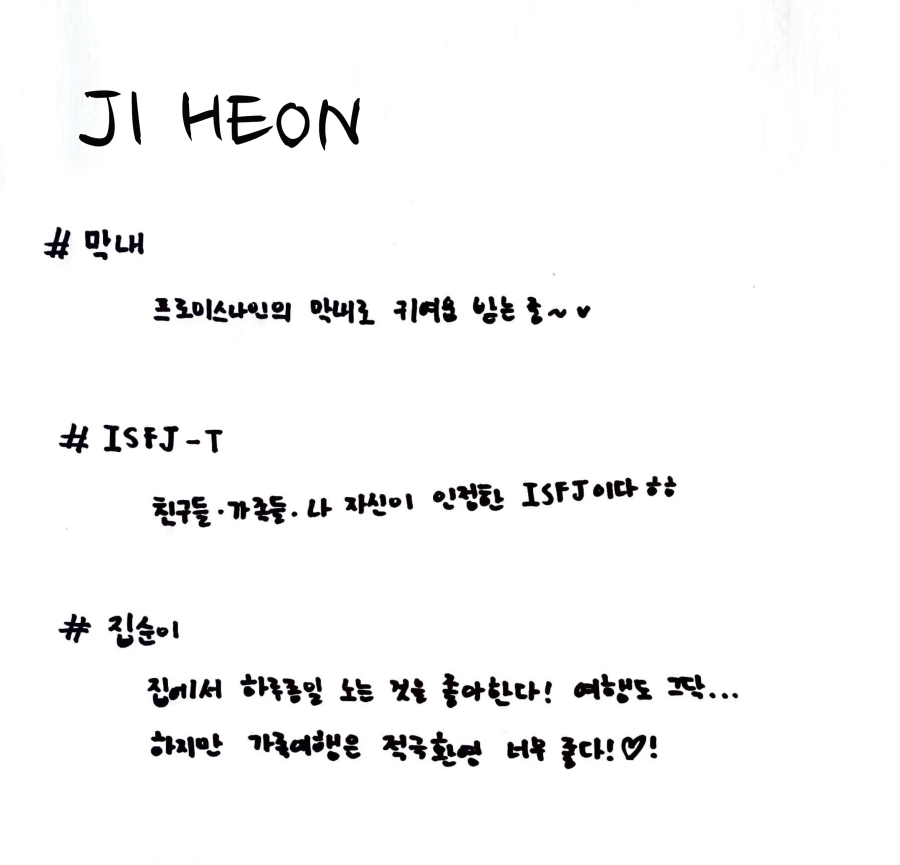 JI HEON
# 막내
프로미스나인의 막내로 귀여움 받는 중~♥
# ISFJ-T
친구들·가족들·나 자신이 인정한 ISFJ이다 ㅎㅎ
# 집순이
집에서 하루종일 노는 것을 좋아한다! 여행도 그닥...
하지만 가족여행은 적극환영 너무 좋다!♡!